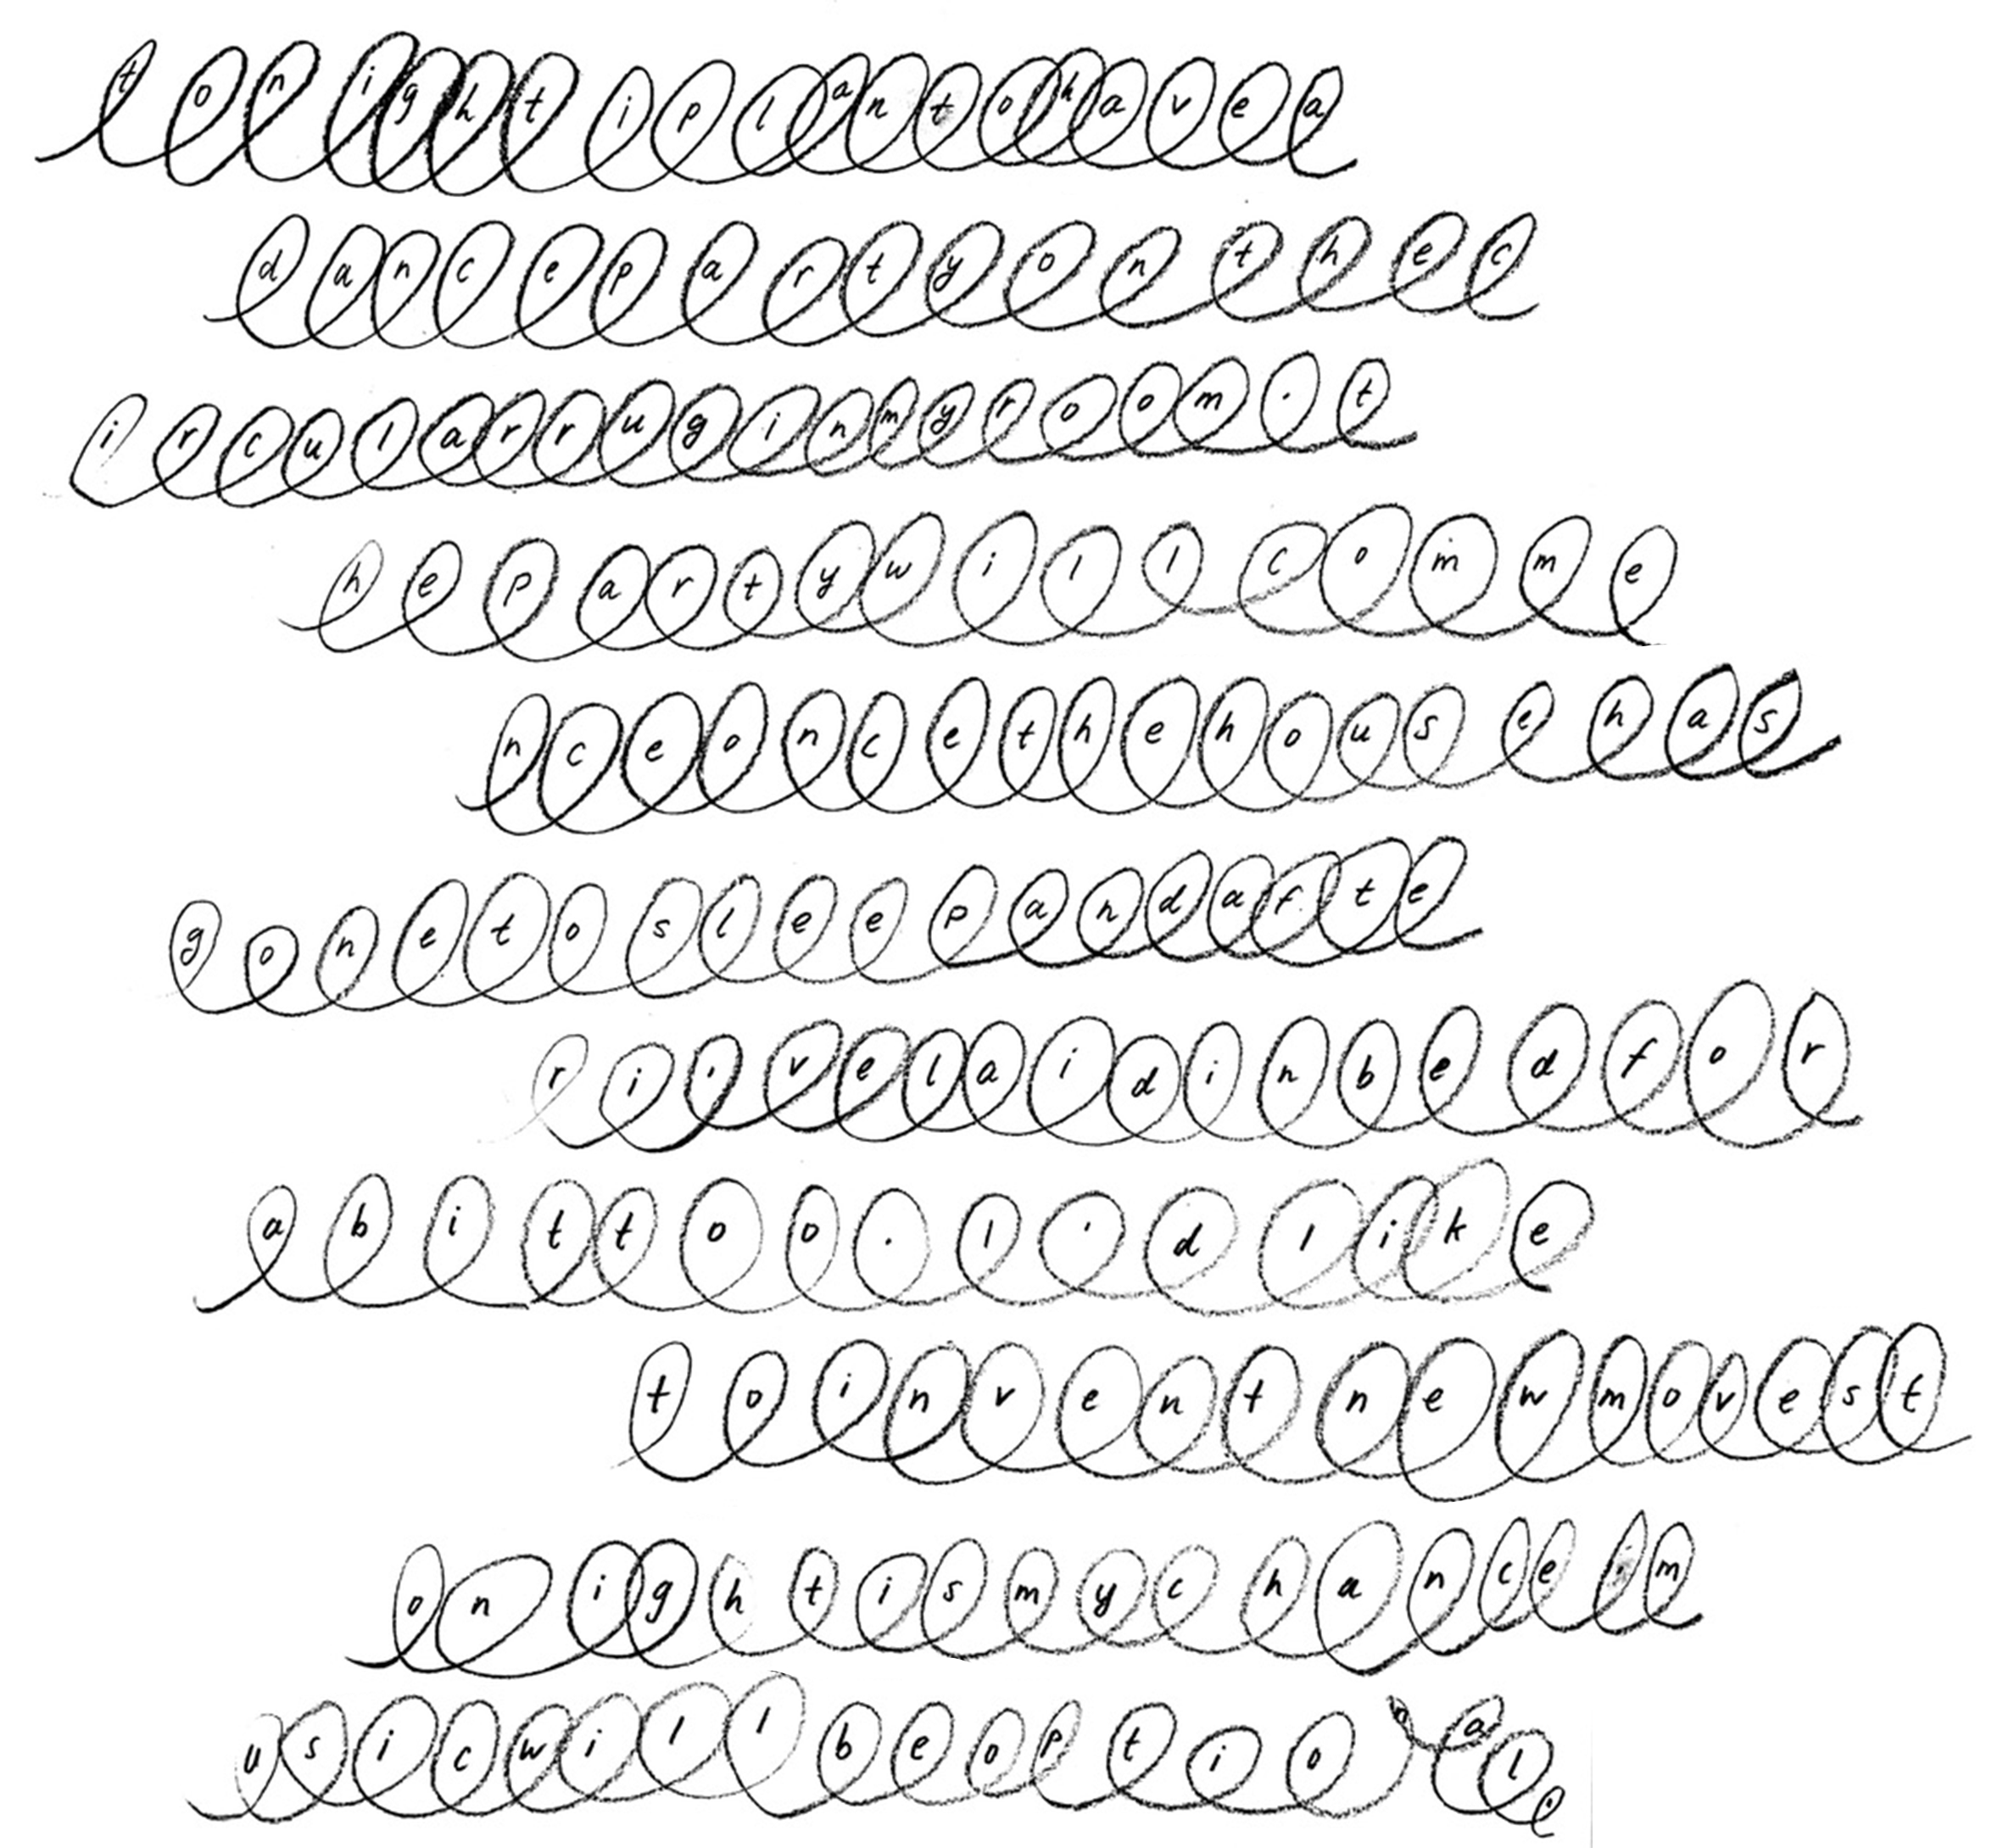 tonight i plan to have a
dance party on the c
ircular rug in my room. t
he party will comme
nce once the house has
gone to sleep and afte
r i've laid in bed for
a bit too. I'd like
to invent new moves t
onight is my chance. m
usic will be optional.